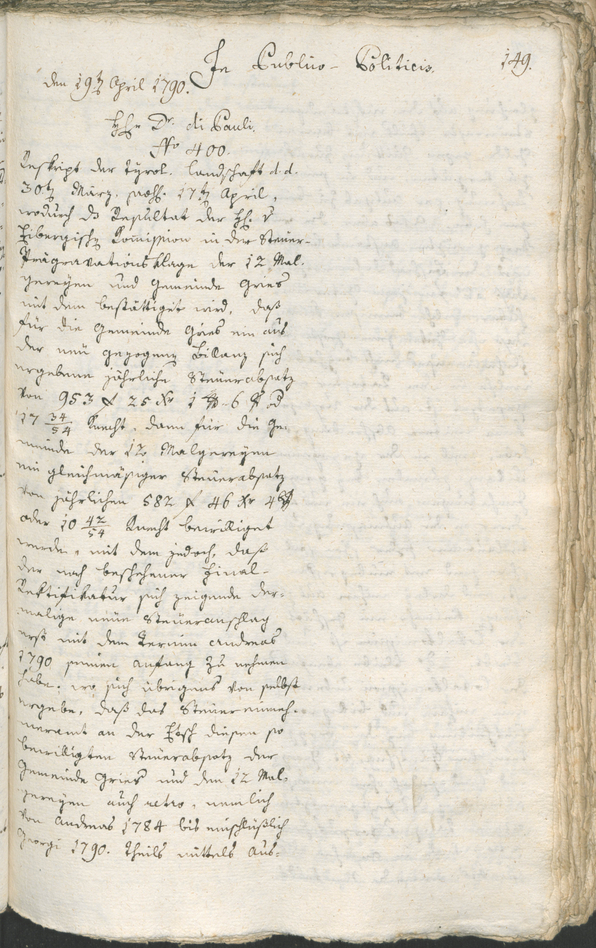 149.
In Publico-Politicis.
den 19t April 1790.
HE. Dr. di Pauli.
No 400.
Reskript der tyrol. Landschaft d.d.
30t März, präs. 17t April,
wodurch das Resultat der HH. v
Eibergisch Komission in der Steuer-
Prägravations klage der 12 Mal-
greyen und Gemeinde Gries
mit dem bestättiget wird, daß
für die Gemeinde Gries ein aus
der neu gezogen Bilanz sich
ergebene jährliche Steuerabsatz
von 953 f 25 xr
17 34/54 Knecht, dann für die Ge-
meinde der 12 Malgreyen
ein gleichmäßiger Steuerabsatz
von jährlichen 582 f 46 xr 4
oder 10 42/54 Knecht bewilliget
werde, mit dem jedoch, daß
der nach beschehener Final-
Rektifikatur sich zeigende der-
malige neue Steueranschlag
erst mit dem Termin Andreas
1790 seinen Anfang zu nehmen
habe, wo sich übrigens von selbst
ergebe, daß das Steuereinneh-
meramt an der Etsch diesen so
bewilligten Steuerabsatz der
Gemeinde Gries und den 12 Mal-
greyen auch retro, nemlich
von Andreas 1784 bis einschlüßlich
Georgi 1790. theils mittels Aus-